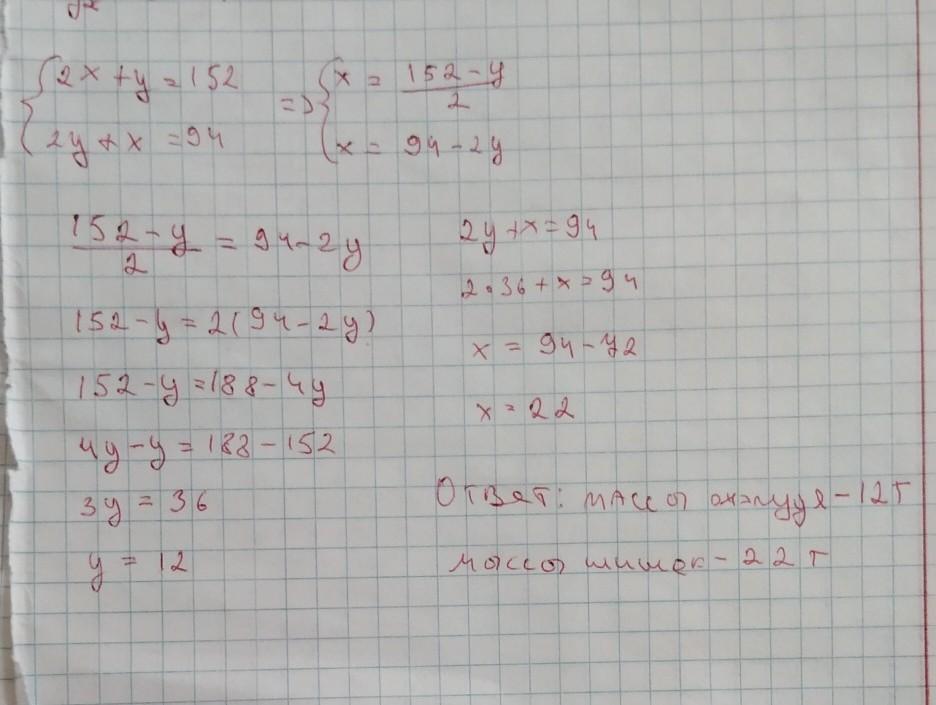 2x + y = 152
2y + x = 94
=>
x = (152 - y)/2
x = 94 - 2y
(152 - y)/2 = 94 - 2y
152 - y = 2(94 - 2y)
152 - y = 188 - 4y
4y - y = 188 - 152
3y = 36
y = 12
2y + x = 94
2·36 + x = 94
x = 94 - 72
x = 22
Ответ: масса - 12 г
масса шишек - 22 г